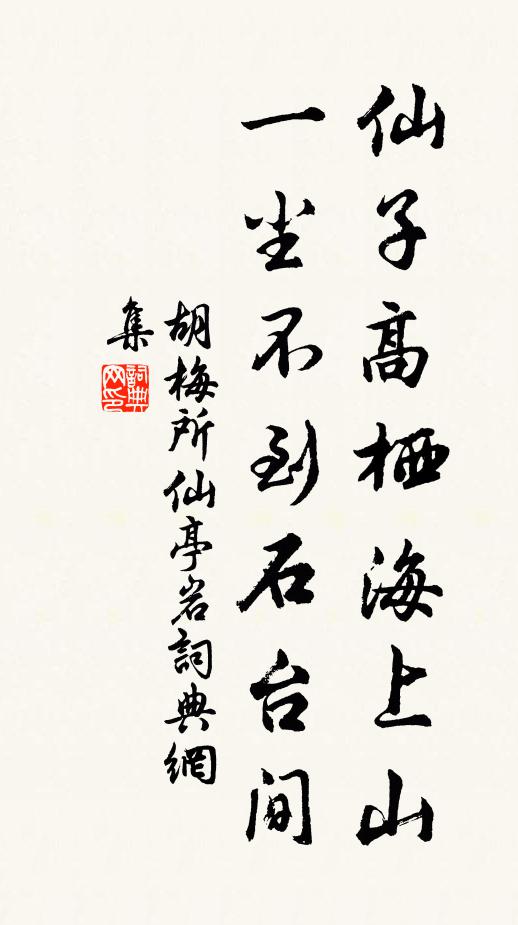 仙子高栖海上山
一尘不到石台间
胡梅所仙亭岩詞典網
集
詞典
网印